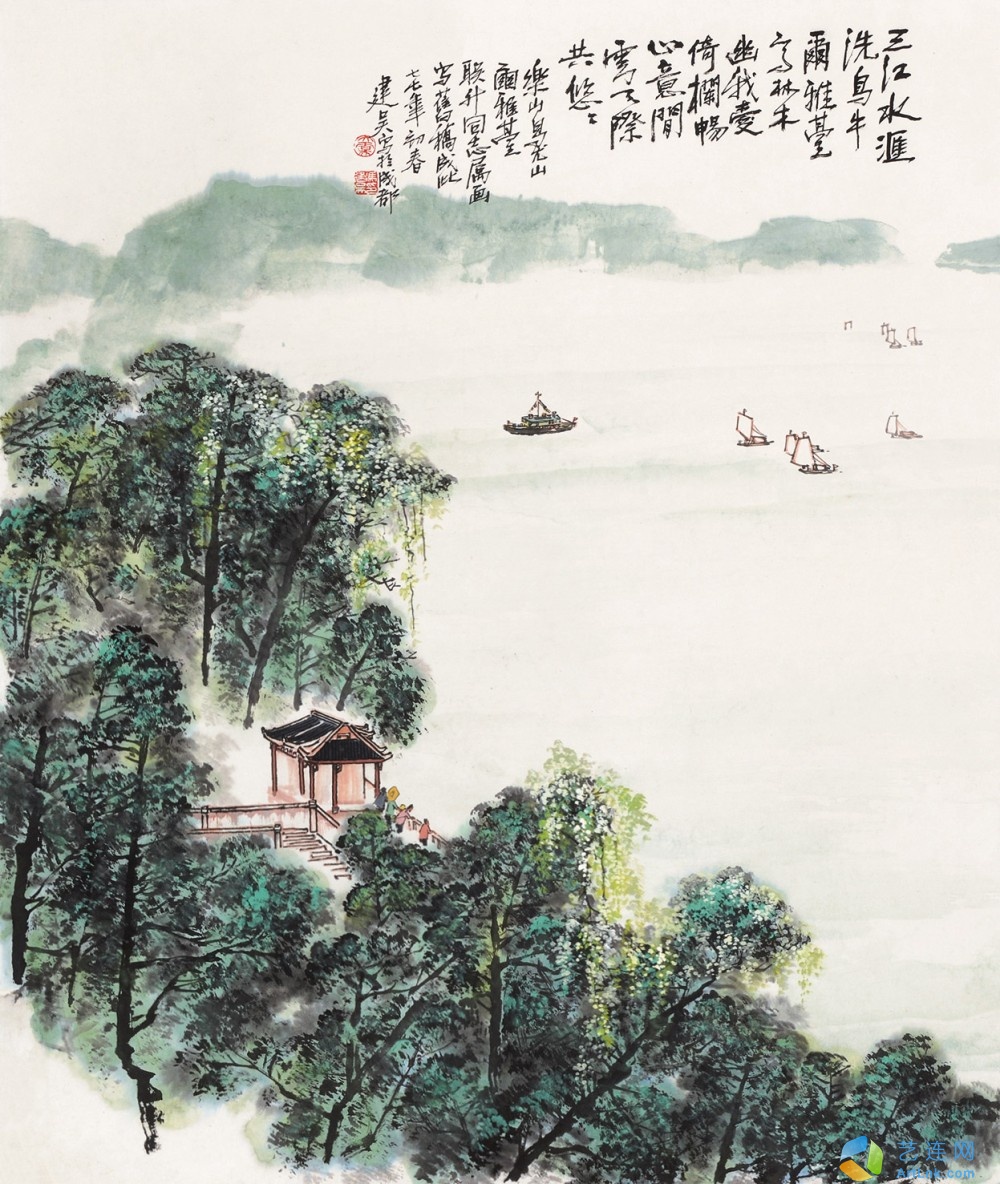 三江水滙
洗烏牛
爾雅臺
高林木
幽我愛
倚欄暢
心意閒
雲天際
共悠〻
樂山烏尤山
爾雅臺
联升同志属画
写舊稿成此
七七年初春
建吴写於成都
艺连网